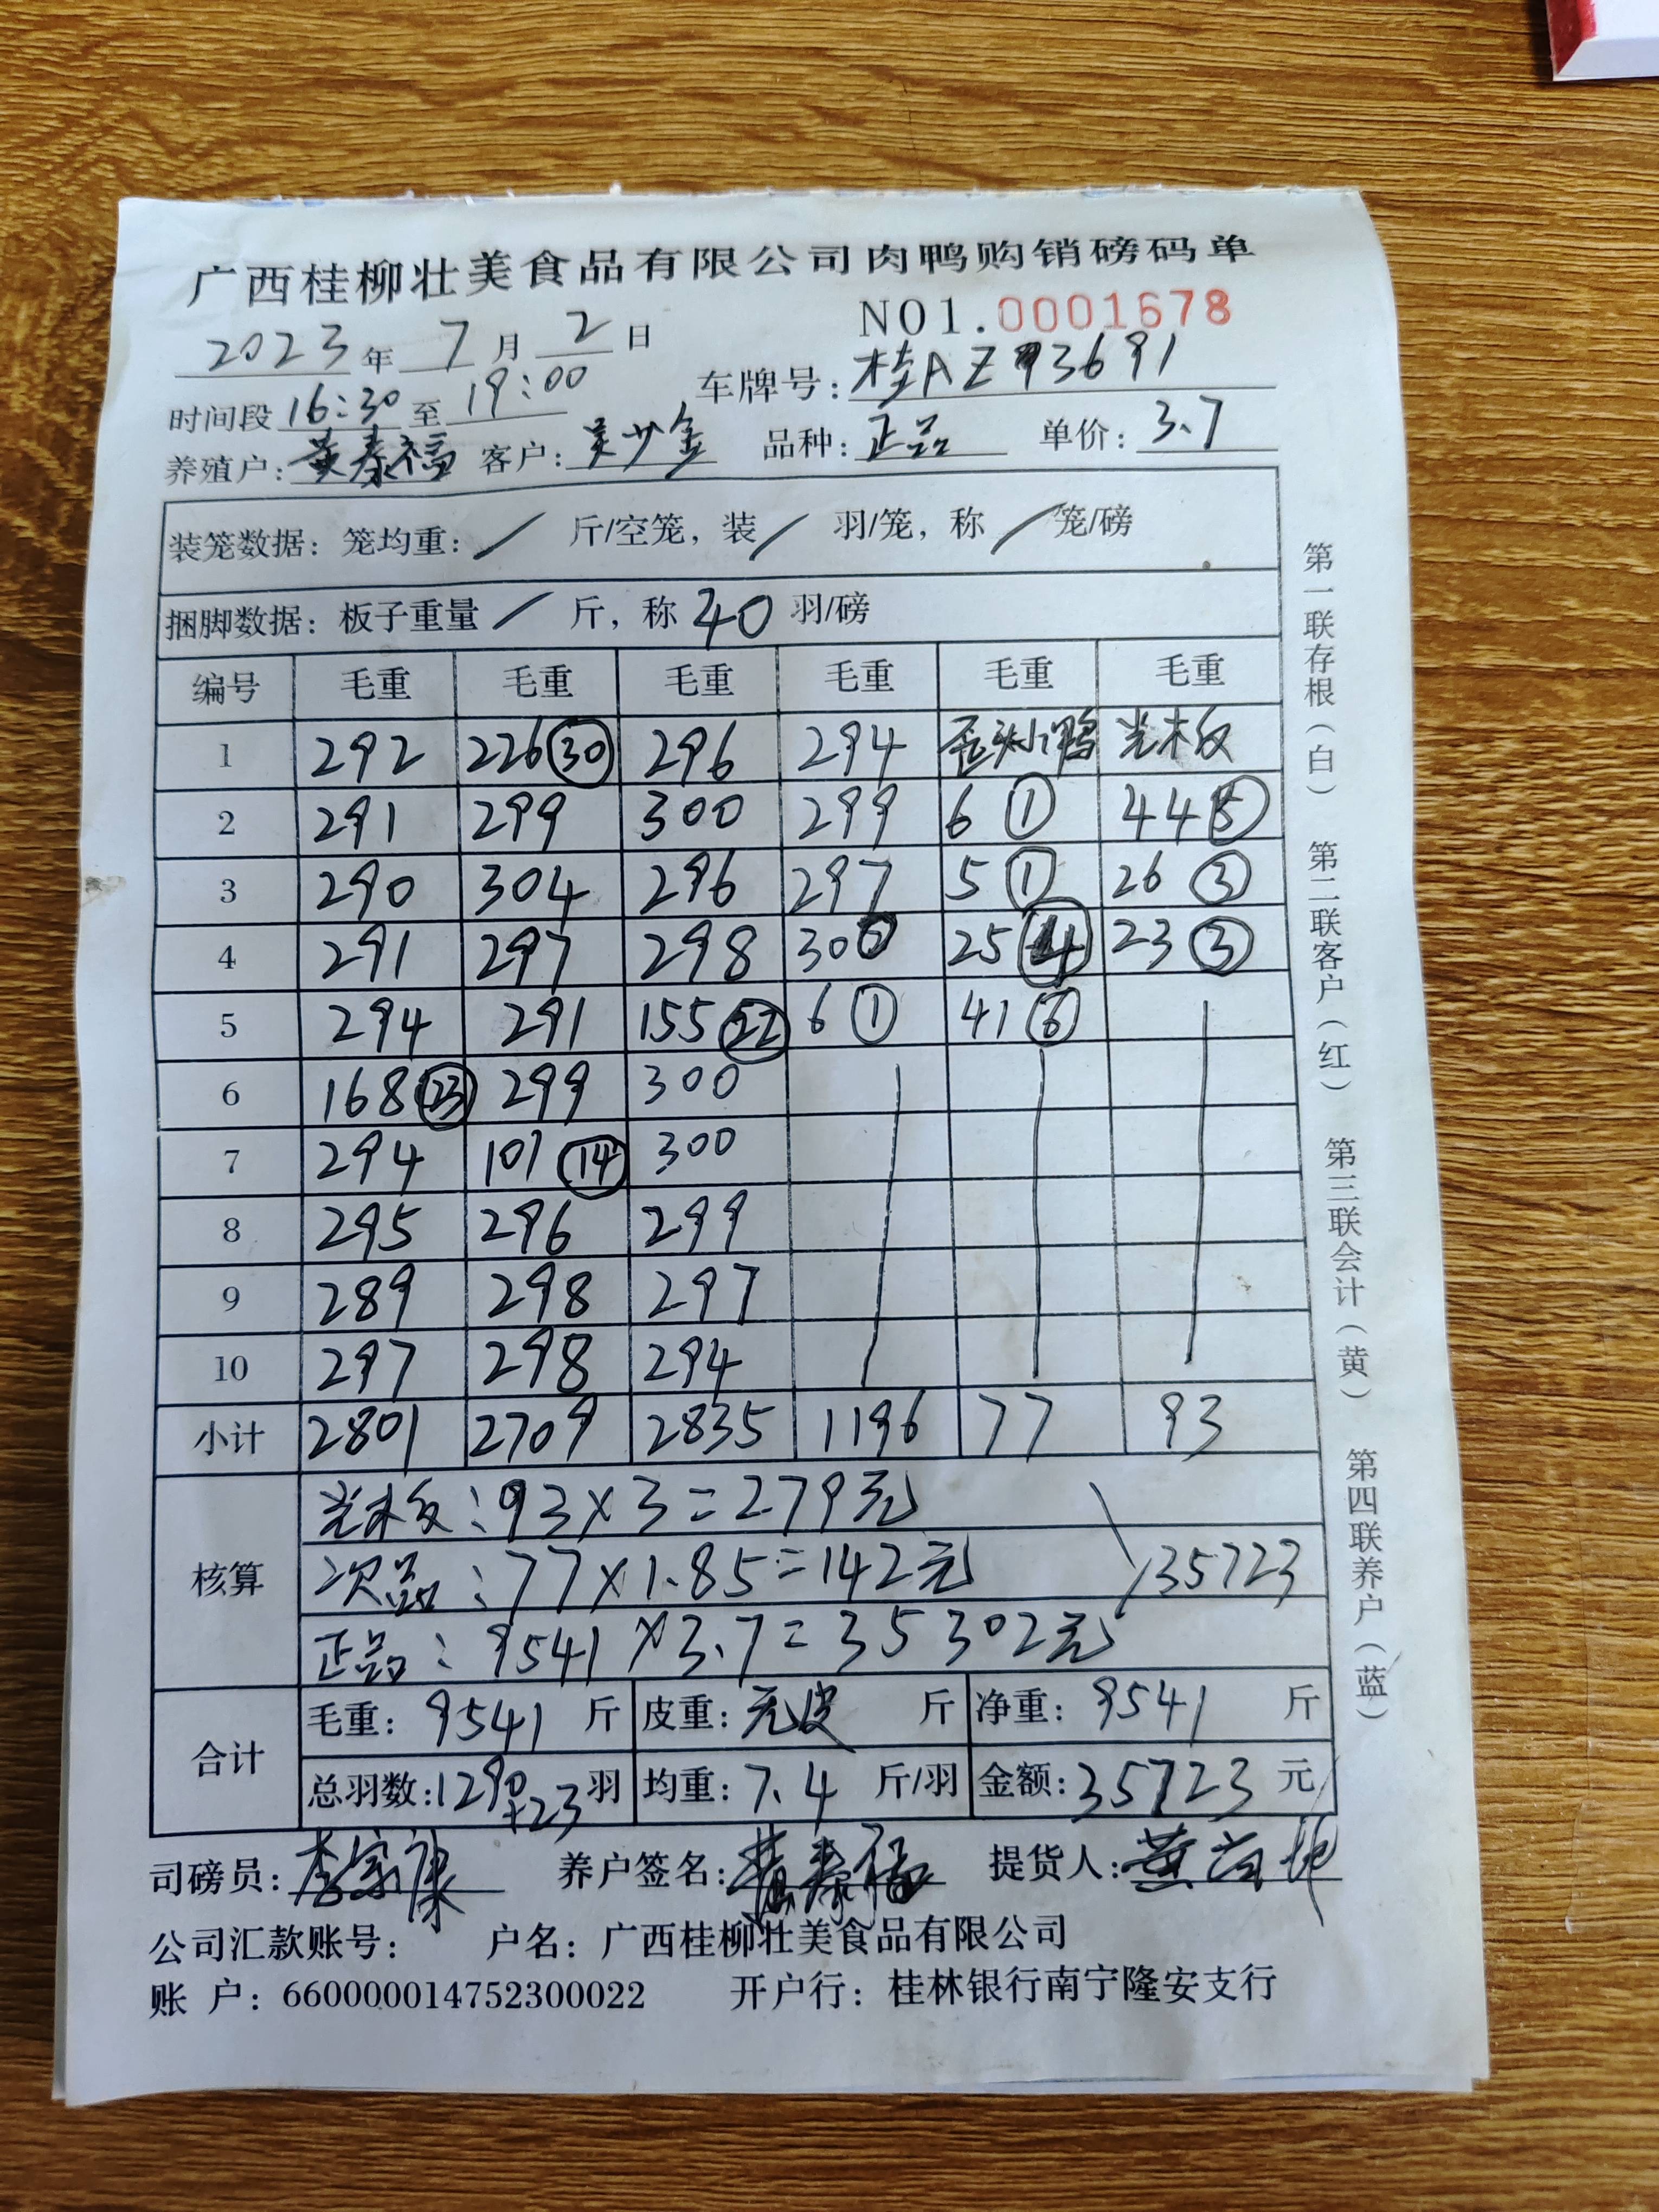 广西桂柳壮美食品有限公司肉鸭购销磅码单
NO1.0001678
2023年 7月 2日
时间段 16:30 至 19:00 车牌号: 桂AZ93691
养殖户: 黄泰福 客户: 吴少金 品种: 正品 单价: 3.7
装笼数据: 笼均重: / 斤/空笼, 装 / 羽/笼, 称 / 笼/磅
捆脚数据: 板子重量 / 斤, 称 40 羽/磅
编号 毛重 毛重 毛重 毛重 毛重 毛重
1 292 226 30 296 294 歪头小鸭 光木板
2 291 299 300 299 6 1 44 5
3 290 304 296 297 5 1 26 3
4 291 297 298 300 25 4 23 3
5 294 291 155 22 6 1 41 6
6 168 23 299 300
7 294 101 14 300
8 295 296 299
9 289 298 297
10 297 298 294
小计 2801 2709 2835 1196 77 93
核算
光木板: 93×3=279元
次品: 77×1.85=142元 35723
正品: 9541×3.7=35302元
合计
毛重: 9541 斤 皮重: 无皮 斤 净重: 9541 斤
总羽数: 1290+23 羽 均重: 7.4 斤/羽 金额: 35723 元
司磅员: 李家康 养户签名: 黄泰福 提货人: 黄
公司汇款账号: 户名: 广西桂柳壮美食品有限公司
账 户: 660000014752300022 开户行: 桂林银行南宁隆安支行
第一联存根(白) 第二联客户(红) 第三联会计(黄) 第四联养户(蓝)